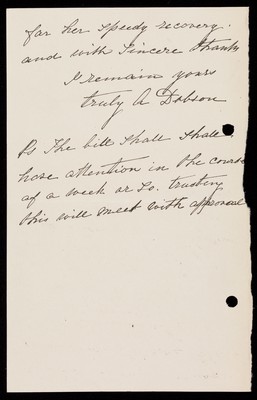 for her speedy recovery.
and with Sincere thanks
I remain yours
truly A Dobson
Ps The bill shall shall
have attention in the course
of a week or so. trusting
this will meet with approval